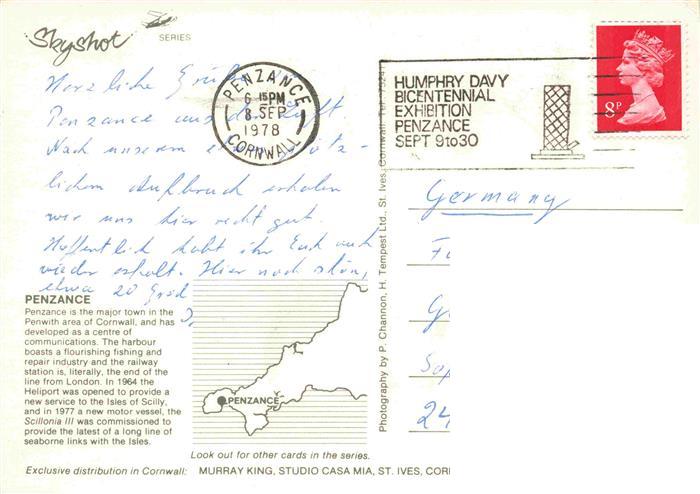 Skyshot
SERIES
Herzliche Grüße
Penzance aus der Luft
Nach unserem
lichem Aufbruch erholen
wir uns hier recht gut.
Hoffentlich habt ihr Euch auch
wieder erholt. Hier noch schön,
etwa 20 Grad
PENZANCE
6 15PM
8 SEP
1978
CORNWALL
HUMPHRY DAVY
BICENTENNIAL
EXHIBITION
PENZANCE
SEPT 9to30
8P
Germany
24
Photography by P. Channon, H. Tempest Ltd., St. Ives, Cornwall. Tel:
PENZANCE
Penzance is the major town in the
Penwith area of Cornwall, and has
developed as a centre of
communications. The harbour
boasts a flourishing fishing and
repair industry and the railway
station is, literally, the end of the
line from London. In 1964 the
Heliport was opened to provide a
new service to the Isles of Scilly,
and in 1977 a new motor vessel, the
Scillonia III was commissioned to
provide the latest of a long line of
seaborne links with the Isles.
PENZANCE
Look out for other cards in the series.
Exclusive distribution in Cornwall: MURRAY KING, STUDIO CASA MIA, ST. IVES, CORI